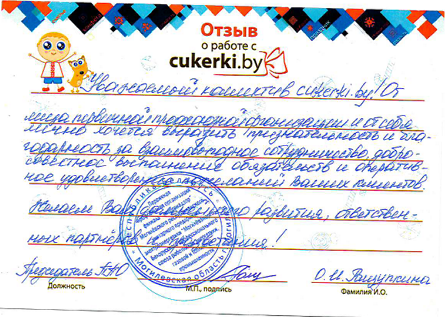 Отзыв
о работе с
cukerki.by
Уважаемый коллектив cukerki.by! От
лица первичной профсоюзной организации и от себя
лично хочется выразить признательность и бла-
годарность за взаимовыгодное сотрудничество, добро-
совестное выполнение обязательств и оператив-
ное удовлетворение пожеланий Ваших клиентов.
Желаем Вам развития, ответствен-
ных партнёров и процветания!
Председатель ППО
О.И.
Должность
М.П., подпись
Фамилия И.О.
Республика Беларусь
Могилевская область